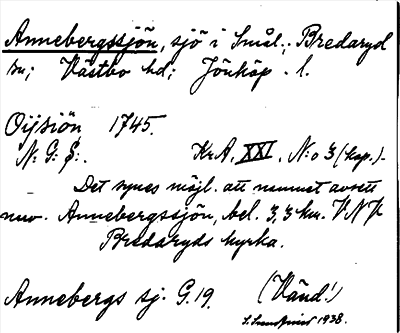 Annebergssjön, sjö i Smål.; Bredaryd
sn; Västbo hd; Jönköp. l.
Oijsiön 1745.
N: G: S:. KrA, XXI, N:o 3 (kop.).
Det synes möjl. att namnet avsett
nuv. Annebergssjön, bel. 3,3 km. VNV
Bredaryds kyrka.
Annebergs sj. G.19. (Vänd!)
1938.